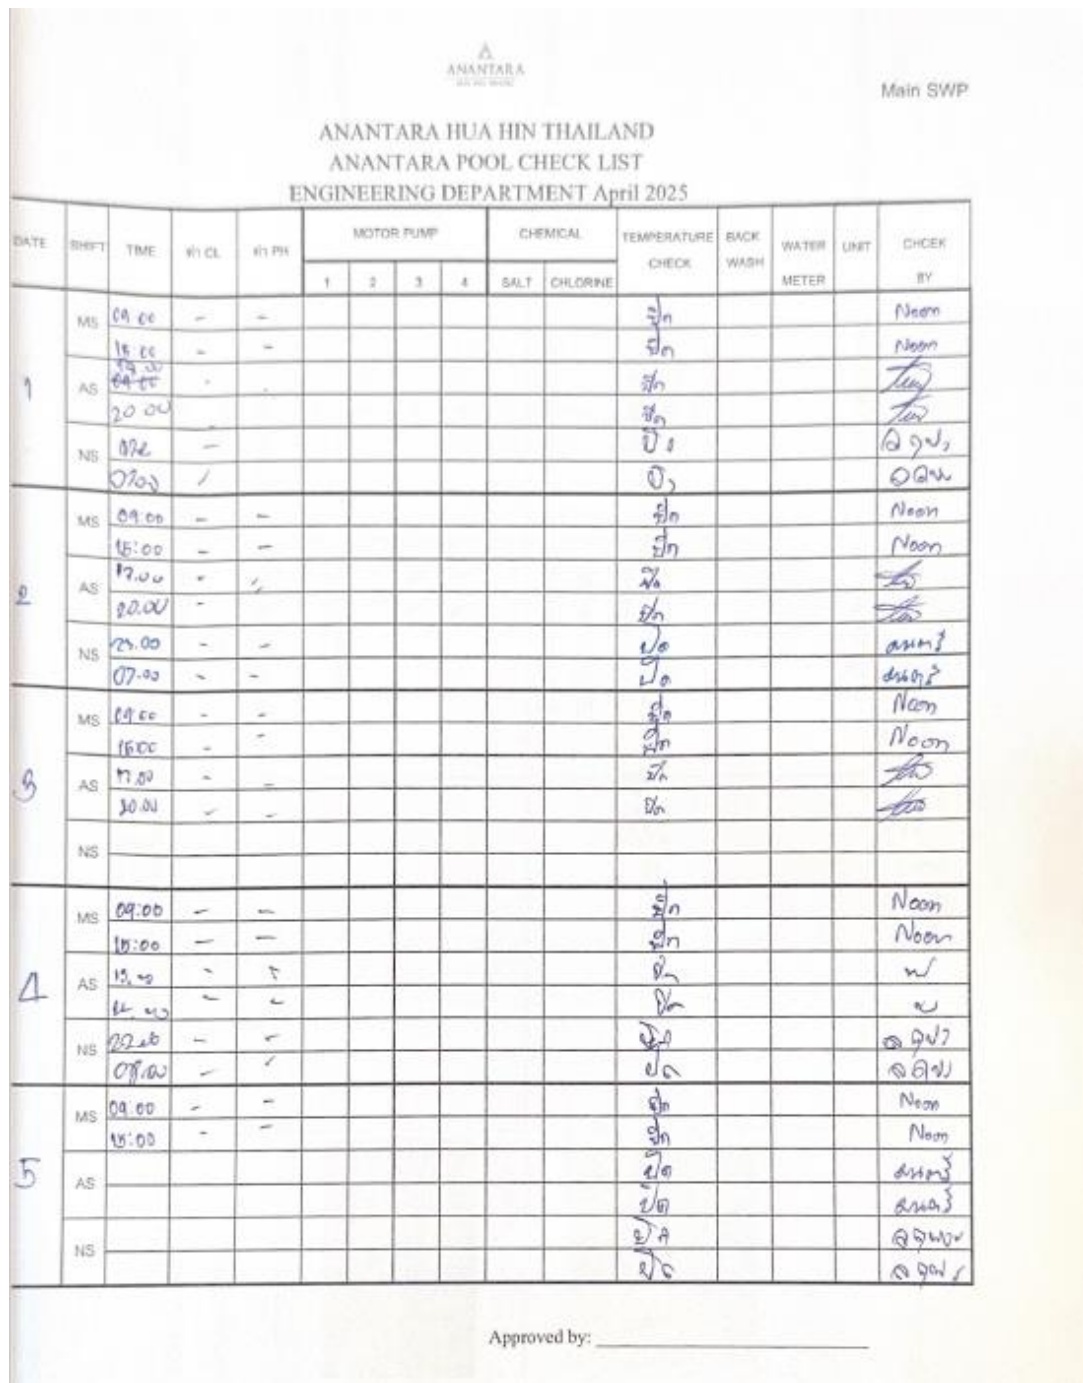 ANANTARA
Main SWP
ANANTARA HUA HIN THAILAND
ANANTARA POOL CHECK LIST
ENGINEERING DEPARTMENT April 2025
DATE SHIFT TIME ค่า CL ค่า PH MOTOR PUMP CHEMICAL TEMPERATURE CHECK BACK WASH WATER METER UNIT CHCEK BY
1 2 3 4 SALT CHLORINE
1 MS 09 00 - - ปิด Noon
15 00 - - ปิด Noon
AS ปิด
20 00 ปิด
NS -
2 MS 09:00 - - ปิด Noon
15:00 - - ปิด Noon
AS 17.00 - ปิด
20.00 - ปิด
NS 23.00 - - ปิด มนตรี
07.00 - - ปิด มนตรี
3 MS 09 00 - - ปิด Noon
15 00 - - ปิด Noon
AS 17.00 - - ปิด
20.00 - - ปิด
NS
4 MS 09:00 - - ปิด Noon
15:00 - - ปิด Noon
AS - - ปิด
- - ปิด
NS - - ปิด
- - ปิด
5 MS 09:00 - - ปิด Noon
15:00 - - ปิด Noon
AS ปิด มนตรี
ปิด มนตรี
NS ปิด
ปิด
Approved by: